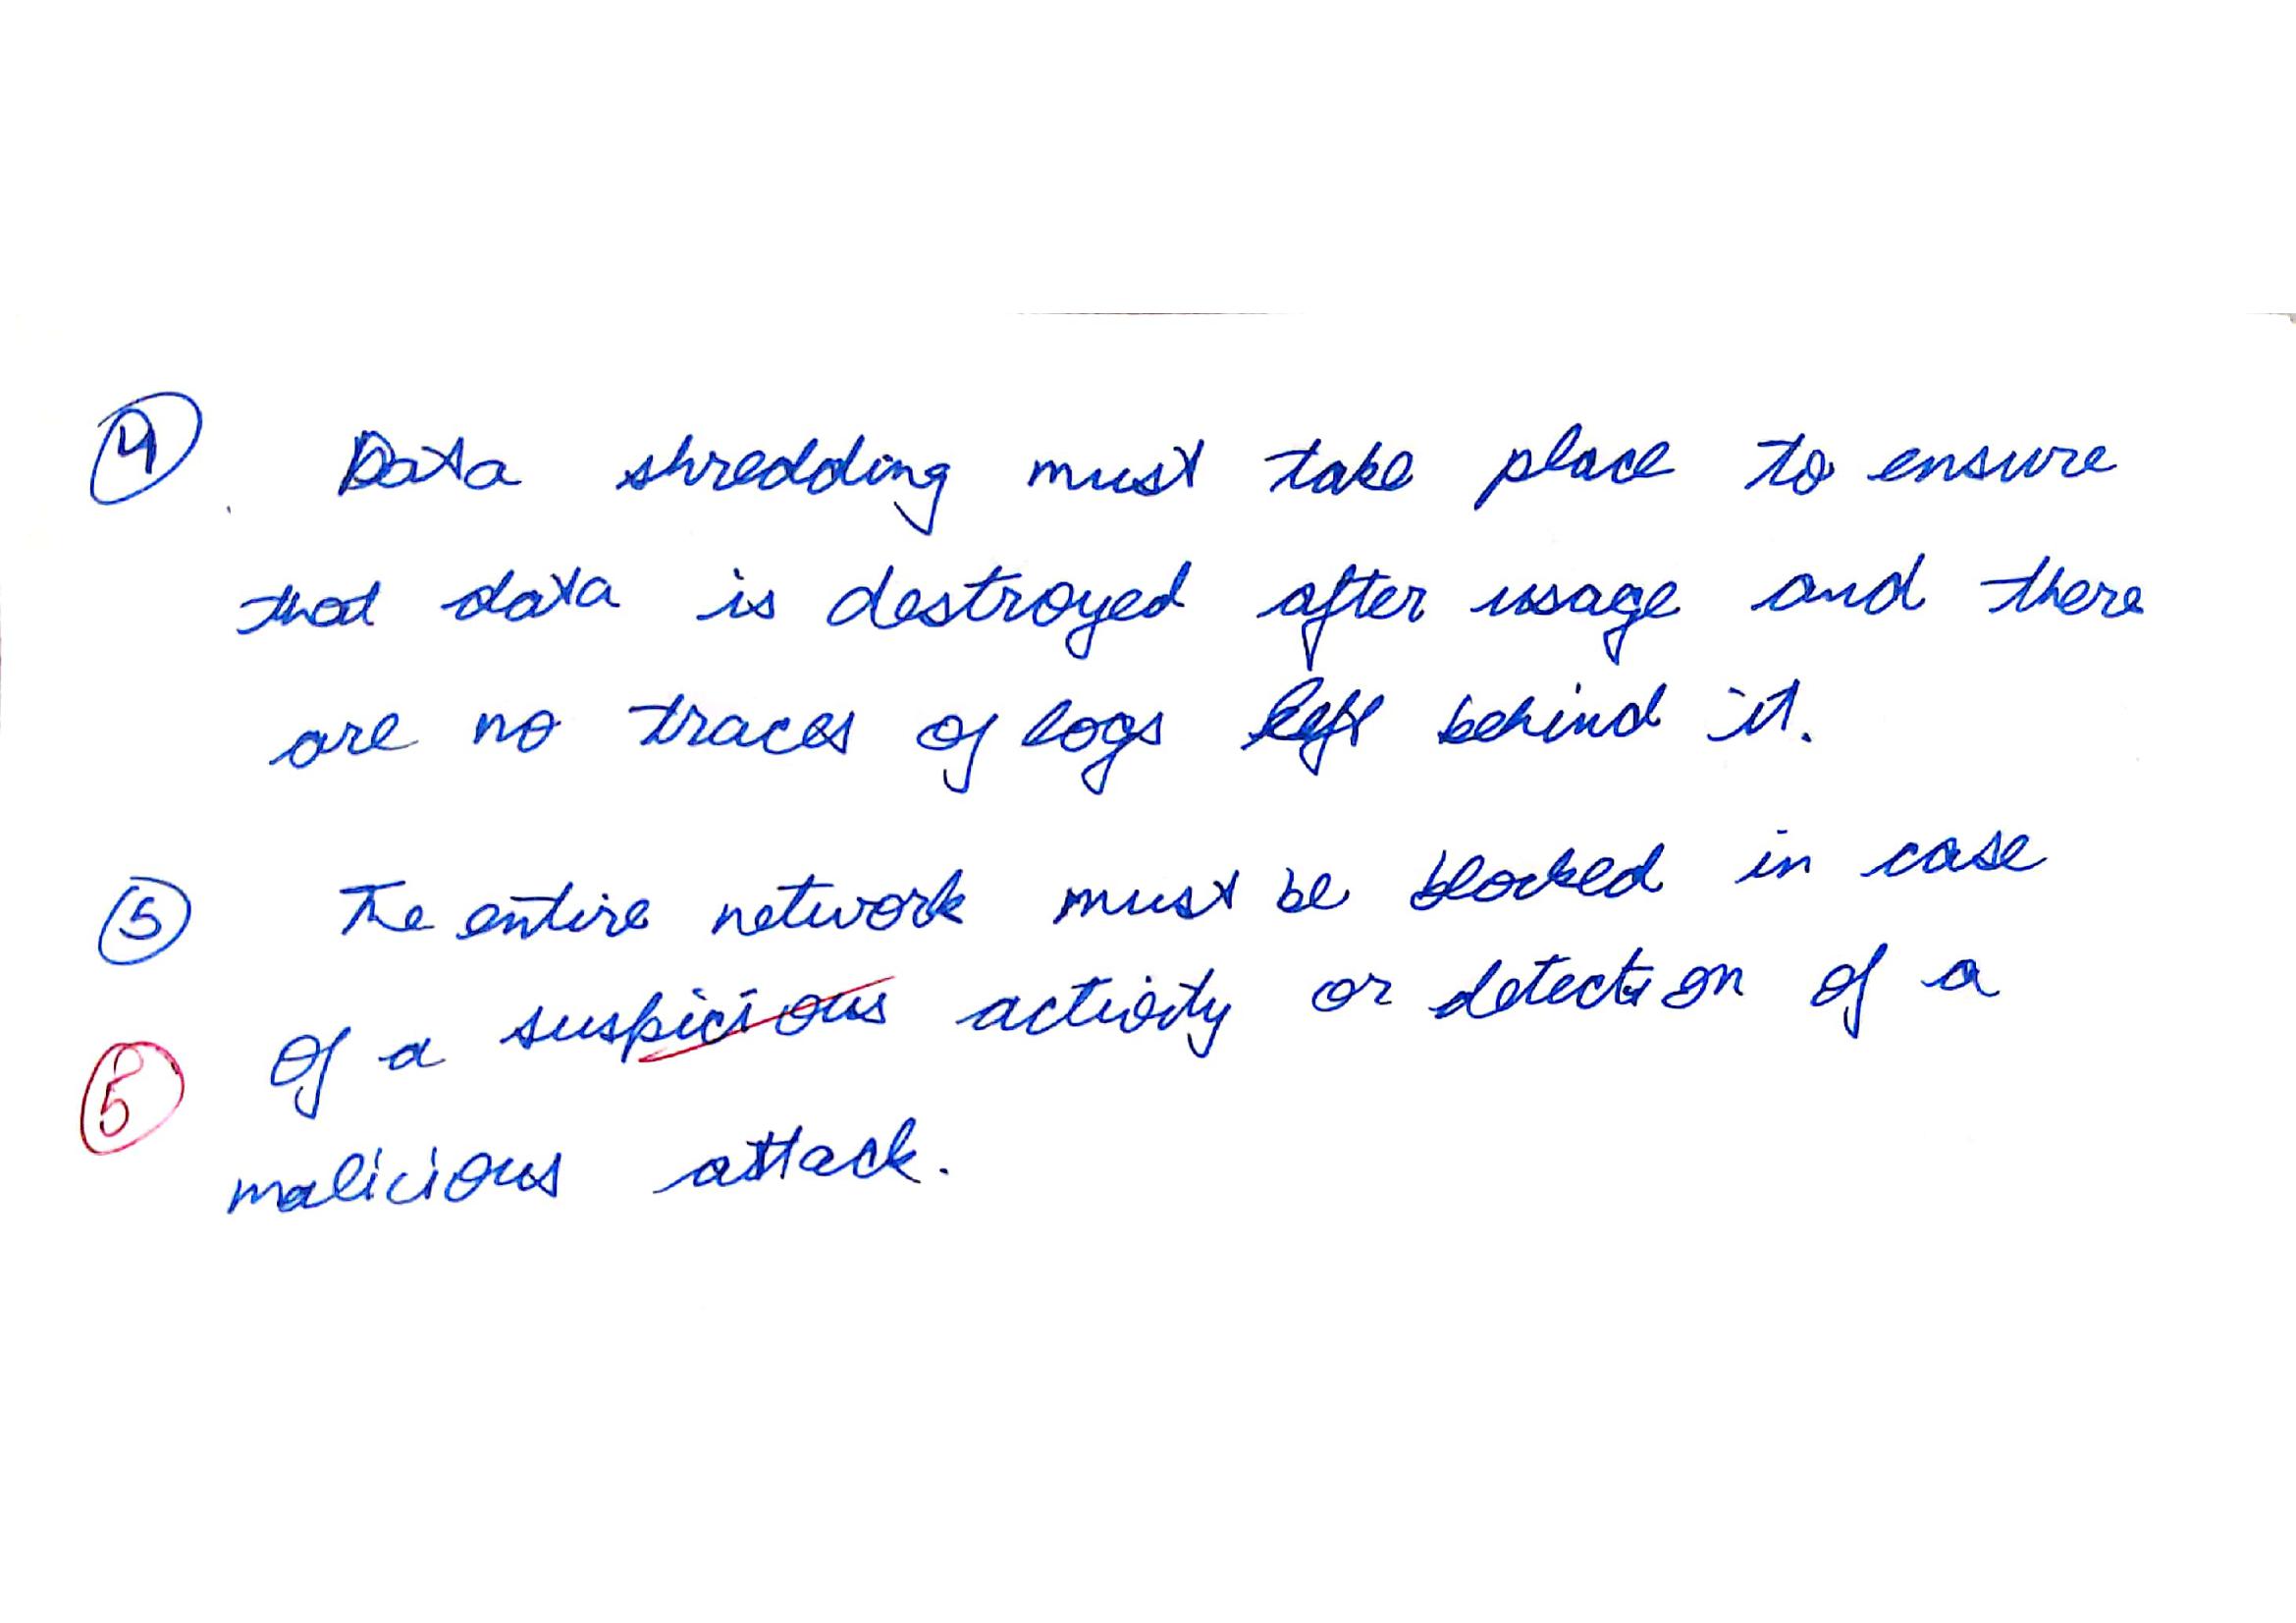 4 Data shredding must take place to ensure
that data is destroyed after usage and there
are no traces of logs left behind it.
5 The entire network must be blocked in case
of a suspicious activity or detection of a
5
malicious attack.